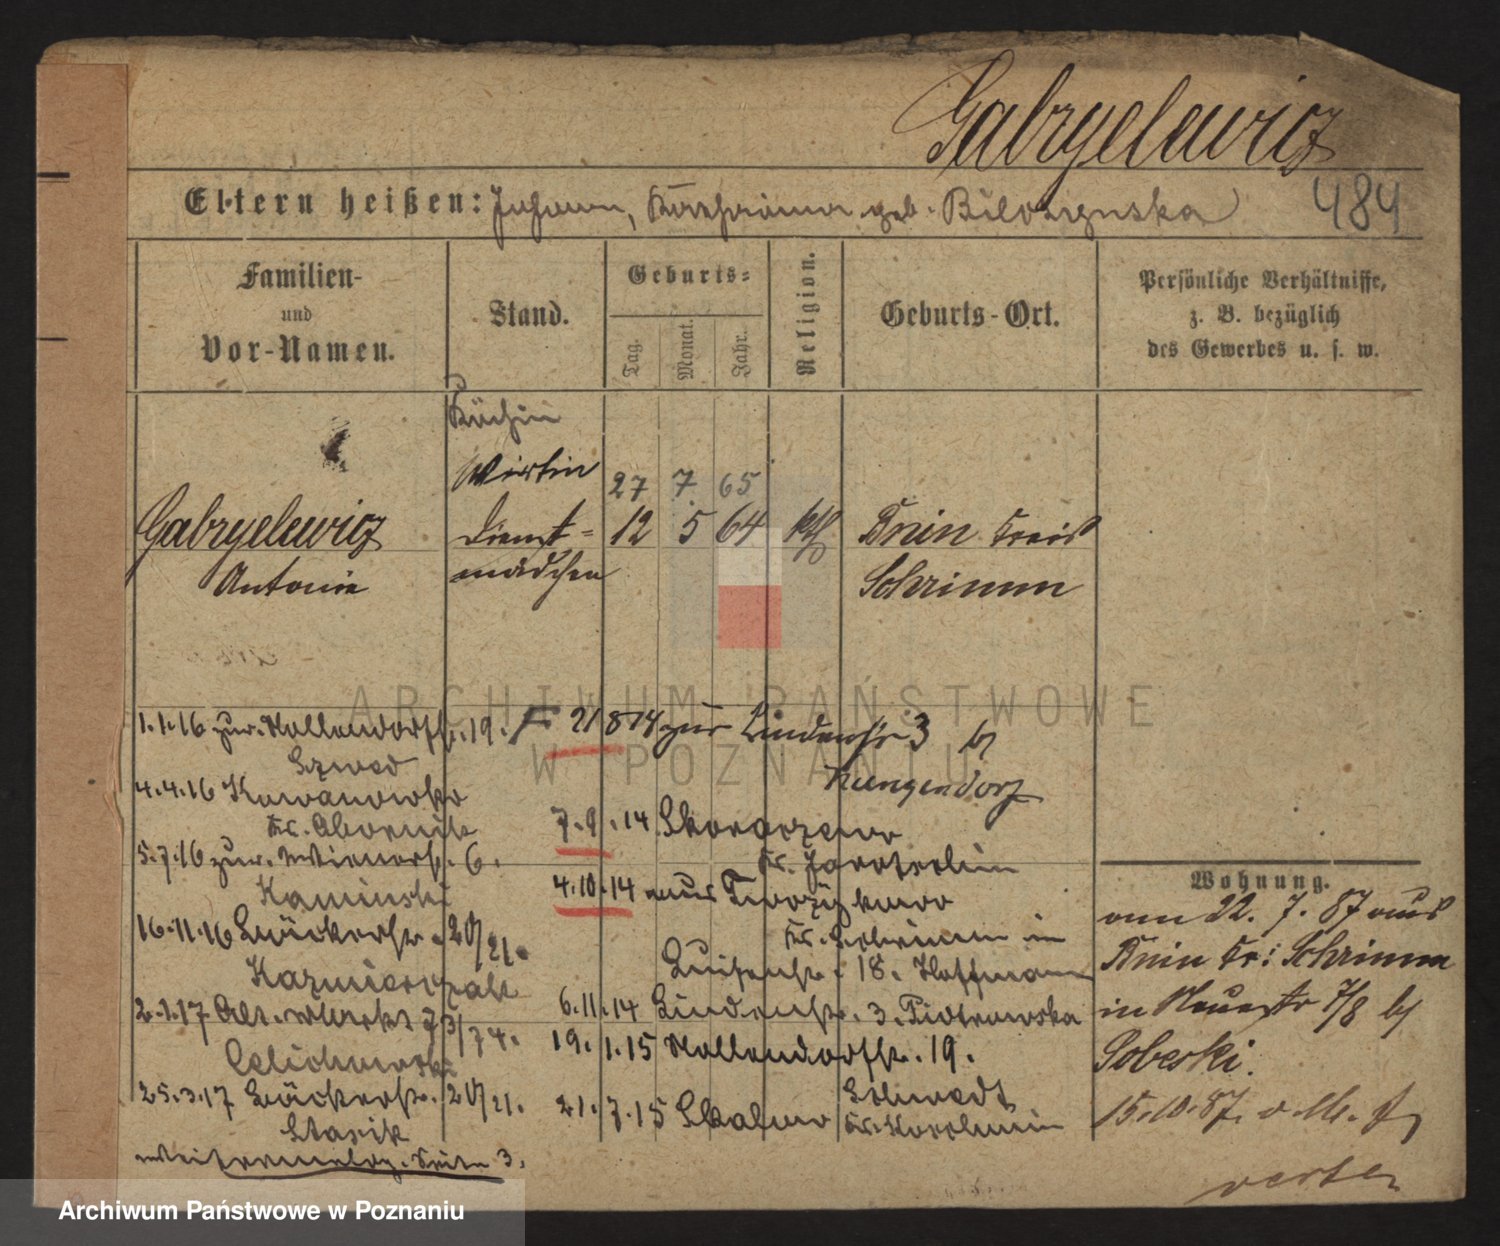 Gabryelewicz
Eltern heißen: Johann, Katharina geb. 484
Familien-
und
Vor-Namen.
Stand.
Geburts-
Tag.
Monat.
Jahr.
Religion.
Geburts-Ort.
Persönliche Verhältnisse,
z. B. bezüglich
des Gewerbes u. s. w.
Köchin
Wirtin
27 7 65
Gabryelewicz
Antonie
Dienst-
mädchen
12 5 64 kth
Bnin Kreis
Schrimm
1.1.16 zur. Nollendorfstr. 19.
Szwed
4.4.16
Kr. Obornik
5.7.16 zur. 6.
Kaminski
16.11.16 Bäckerstr. 20/21.
Kazmierczak
2.1.17 Alt. Markt 73/74.
Celichowski
25.3.17 Bäckerstr. 20/21.
Stasik
Seite 3.
21 8 14 zur Lindenstr 3 b/
Kungendorf
7.9.14
Kr. Jarotschin
4.10.14 aus
Kr. Schrimm in
Luisenstr. 18. Hoffmann
6.11.14 Lindenstr. 3. Piotrowska
19.1.15 Nollendorfstr. 19.
Schwedt
21.7.15
Wohnung.
am 22. 7. 87 aus
Bnin Kr: Schrimm
in Neuestr 7/8 b/
Sobeski.
15.10.87.
verte
ARCHIWUM PAŃSTWOWE
W POZNANIU
Archiwum Państwowe w Poznaniu